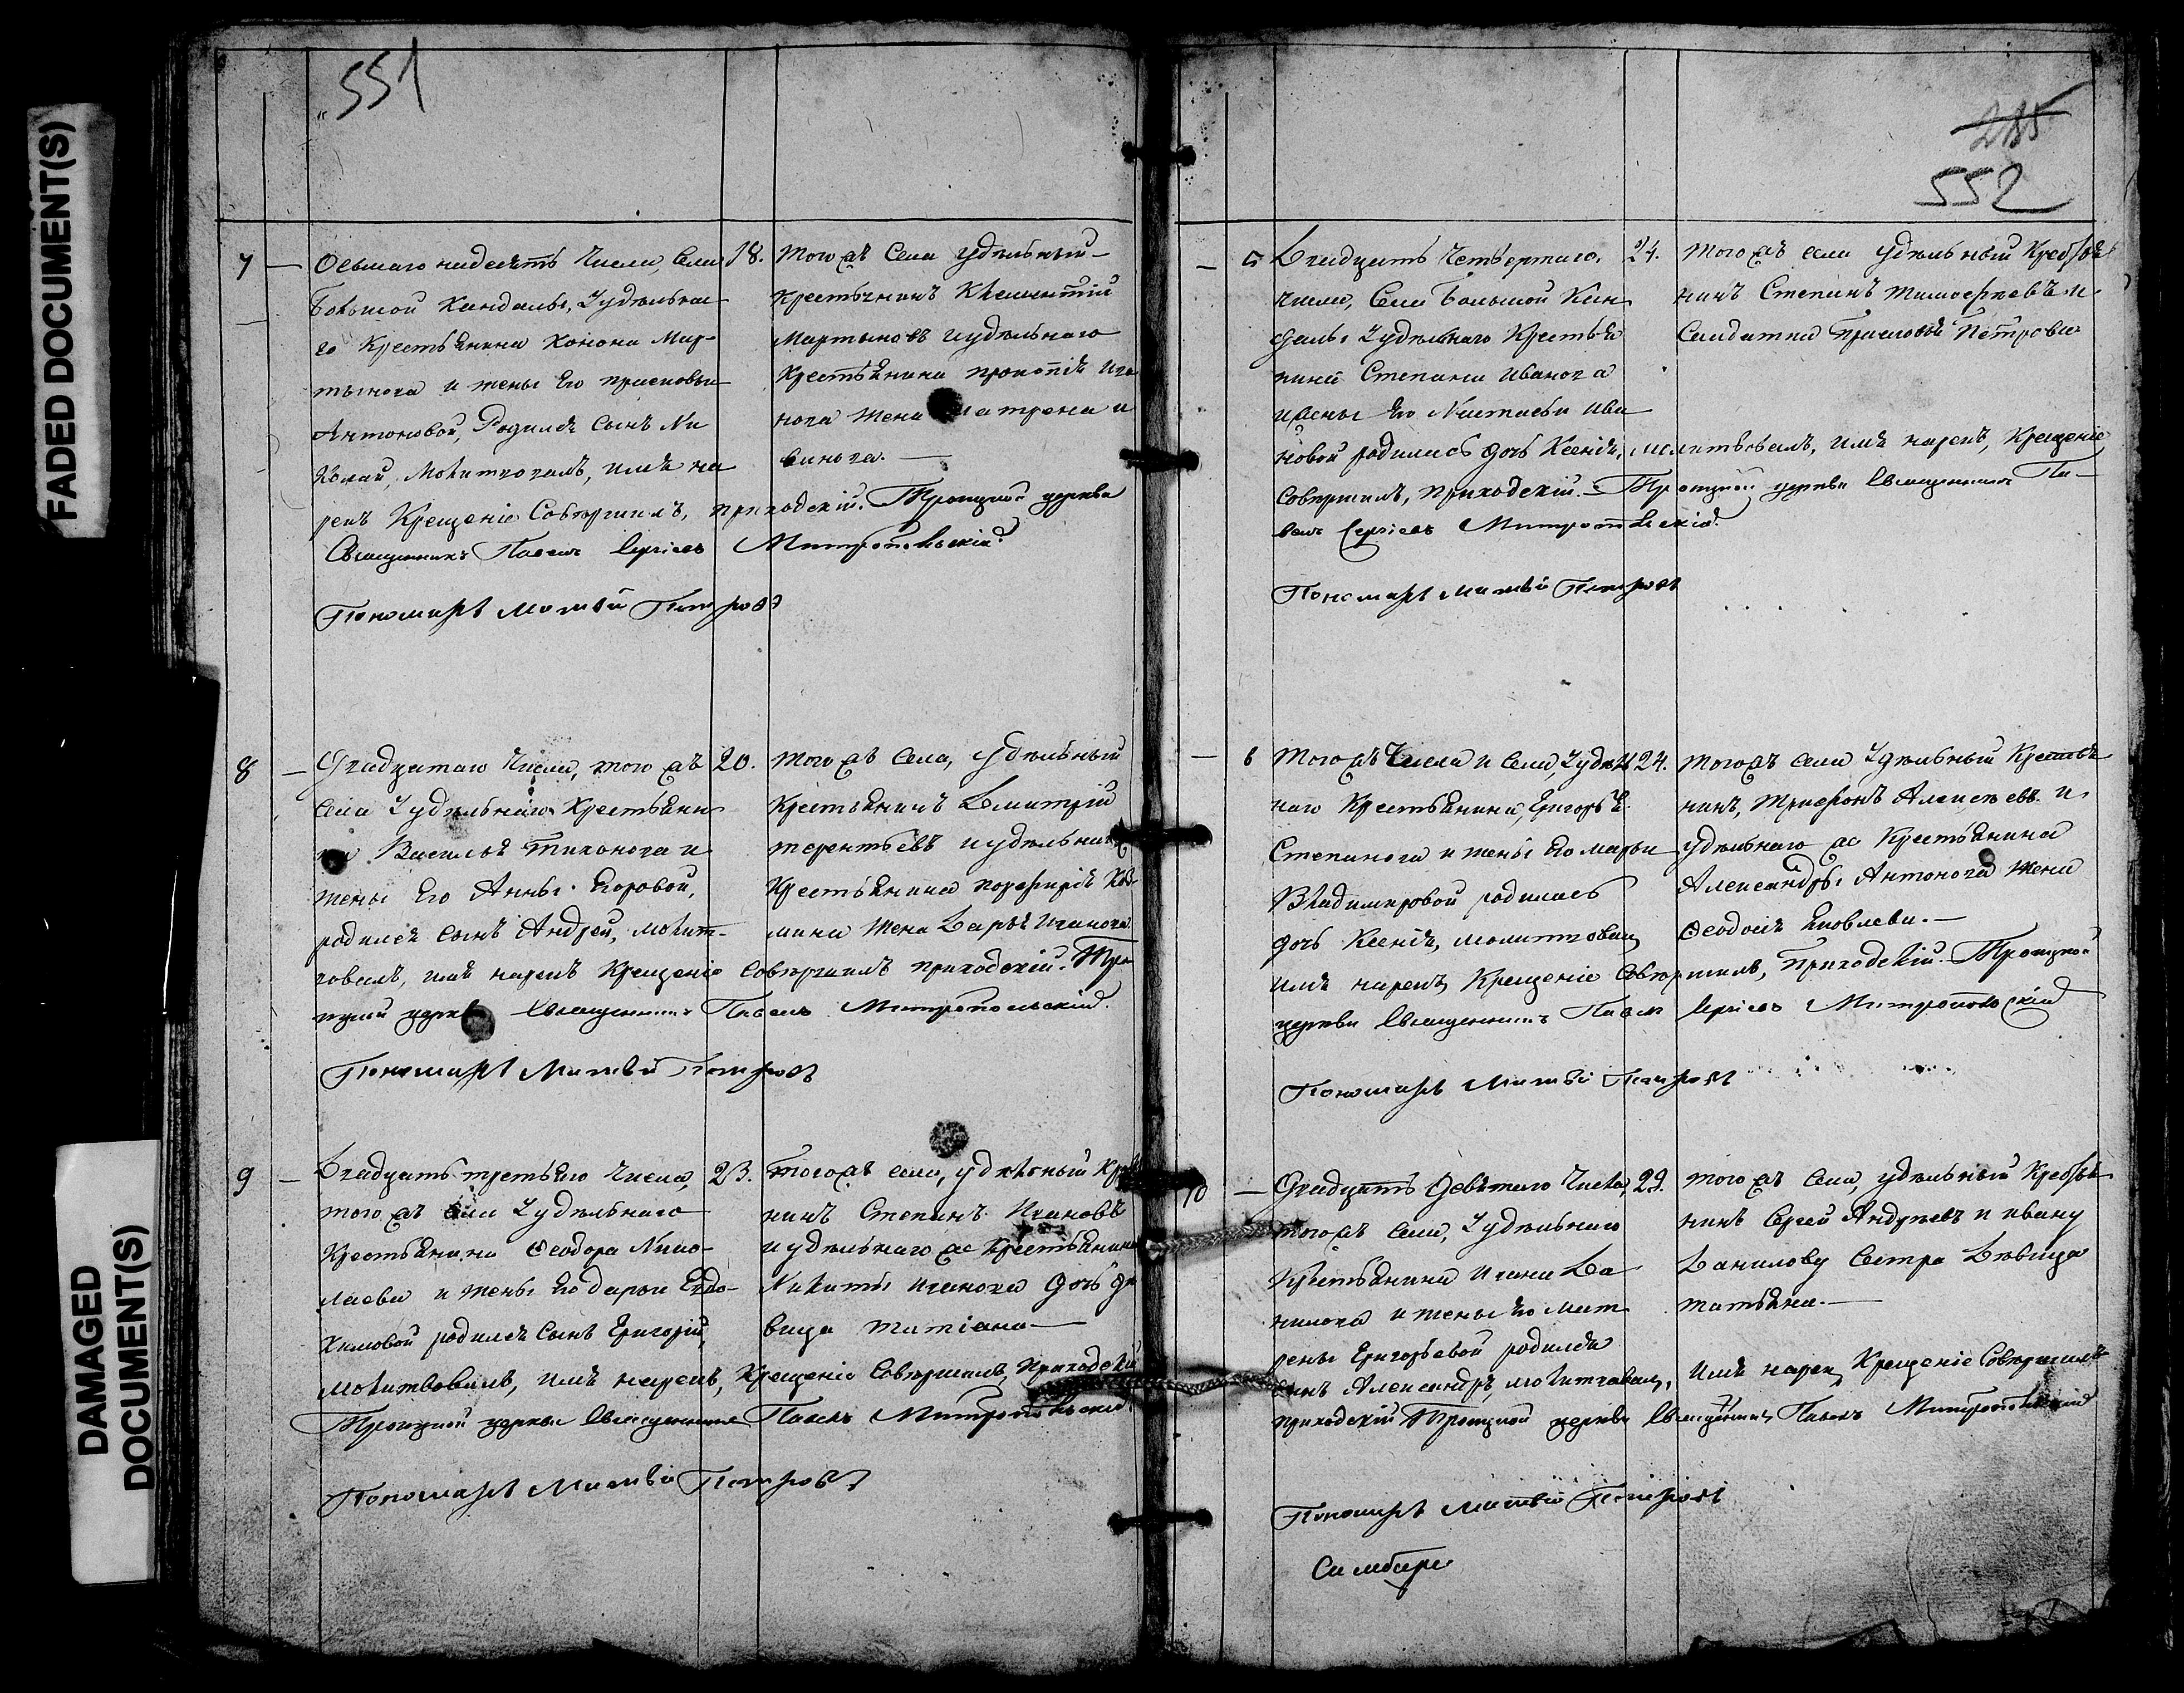 FADED DOCUMENT(S)
DAMAGED
DOCUMENT(S)
551
7 — Осьмаго надесять Числа, Села 18.
Большой Кандалы, Удѣльна-
го Крестьянина Конона Мар-
тынова и жены Его Прасковьи
Антоновой, Родился Сынъ Ни
колай, Молитвовалъ, имя на
рекъ Крещеніе Совершилъ, приходскій Троицкой церкви
Священникъ Павелъ Сергіевъ Митропольскій
Пономарь Матвѣй Петровъ
Того жъ Села Удѣльный
Крестьянинъ Климентій
Мартыновъ и удѣльнаго
Крестьянина Прокопія Ива
нова жена Матрена и
8 — Двадцатаго Числа, того жъ 20.
Села Удѣльнаго Крестьяни
на Василья Тихонова и
жены Его Анны Егоровой,
родился Сынъ Андрей, Молит-
вовалъ, имя нарекъ Крещеніе Совершилъ приходскій Тро
ицкой церкви Священникъ Павелъ Митропольскій
Пономарь Матвѣй Петровъ
Того жъ Села, Удѣльный
Крестьянинъ Дмитрій
Терентьевъ и удѣльнаго
Крестьянина Порфирія Коз
мина жена Дарья Иванова
9 — Двадцать третьяго Числа, 23.
того жъ Села Удѣльнаго
Крестьянина Ѳеодора Нико-
лаева и жены Его Дарьи Евдо-
кимовой родился Сынъ Григорій,
Молитвовалъ, имя нарекъ, Крещеніе Совершилъ, Приходскій
Троицкой церкви Священникъ Павелъ Митропольскій
Пономарь Матвѣй Петровъ
Того жъ Села, удѣльный Кре
нинъ Степанъ Ивановъ
и удѣльнаго же Крестьянина
Никиты Иванова дочь дѣ
вица Татіана —
285
552
— 5 Двадцать Четвертаго 24.
числа, Села Большой Кан
далы Удѣльнаго Крестья
нина Степана Иванова
и жены Его Настасьи Ива
новой родилась дочь Ксенія, молитвовалъ, имя нарекъ, Крещеніе
Совершилъ, приходскій Троицкой церкви Священникъ Па-
велъ Сергіевъ Митропольскій
Пономарь Матвѣй Петровъ
Того жъ Села Удѣльный Крестья
нинъ Степанъ Тимофеевъ и
Солдатка Прасковья Петрова
— 6 Того жъ Числа и Села, Удѣль 24.
наго Крестьянина, Григорья
Степанова и жены Его Марьи
Владимировой родилась
дочь Ксенія, молитвовалъ
имя нарекъ, Крещеніе Совершилъ, Приходскій Троицкой
церкви Священникъ Павелъ Сергіевъ Митропольскій
Пономарь Матвѣй Петровъ
Того жъ Села Удѣльный Крестья
нинъ, Трифонъ Алексѣевъ и
удѣльнаго же Крестьянина
Александры Антонова жена
Ѳеодосья Яковлева. —
10 — Двадцать Девятаго Числа, 29.
того жъ Села, Удѣльнаго
Крестьянина Ивана Да
нилова и жены Его Мат
рены Григорьевой родился
сынъ Александръ, молитвовалъ, Имя нарекъ Крещеніе Совершилъ
приходскій Троицкой церкви Священникъ Павелъ Митропольскій
Пономарь Матвѣй Петровъ
Того жъ Села, удѣльный Крестья
нинъ Сергей Андреевъ и Ивану
Данилову Сестра Дѣвица
Татьяна. —